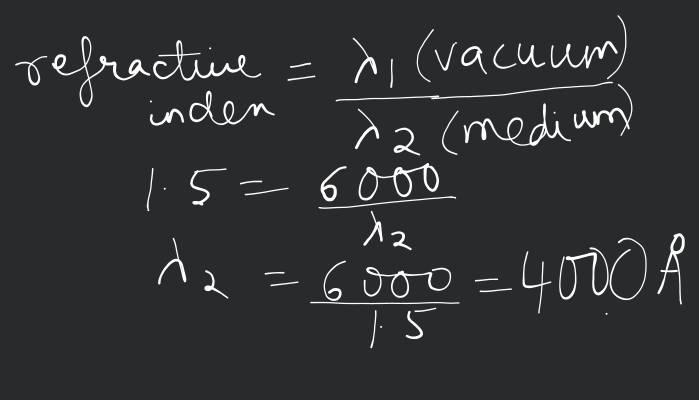 refractive index = λ₁ (vacuum) / λ₂ (medium)
1.5 = 6000 / λ₂
λ₂ = 6000 / 1.5 = 4000 Å